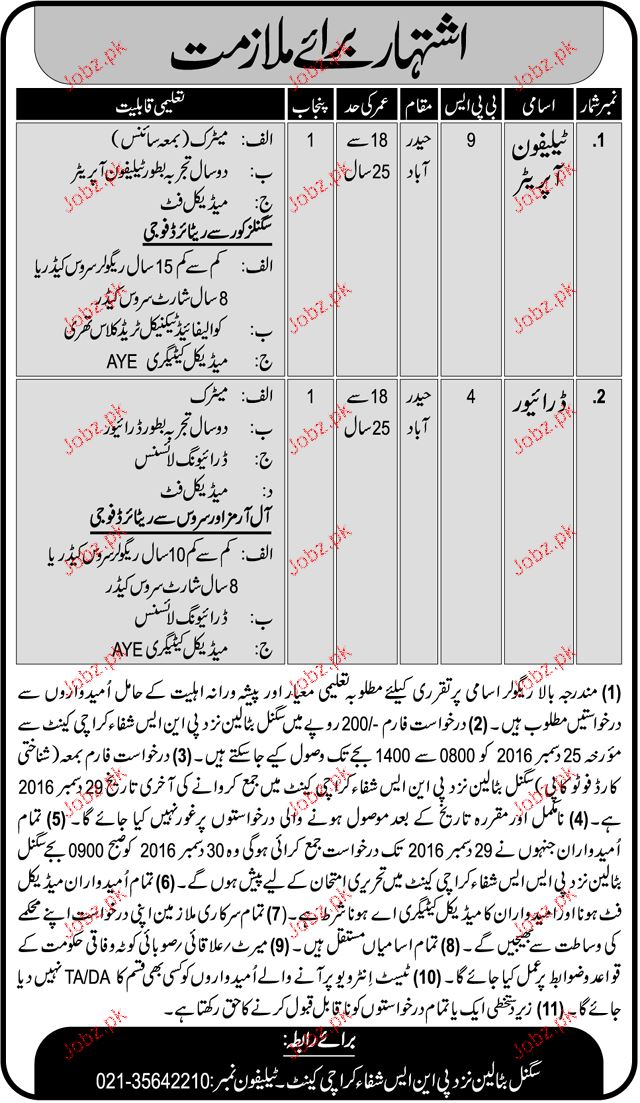 اشتہار برائے ملازمت
نمبر شمار اسامی بی پی ایس مقام عمر کی حد پنجاب تعلیمی قابلیت
1. ٹیلیفون آپریٹر 9 حیدر آباد 18 سے 25 سال 1
الف: میٹرک (بمعہ سائنس)
ب: دو سال تجربہ بطور ٹیلیفون آپریٹر
ج: میڈیکل فٹ
سگنلز کور سے ریٹائرڈ فوجی
الف: کم سے کم 15 سال ریگولر سروس کیڈر یا
8 سال شارٹ سروس کیڈر
ب: کوالیفائیڈ ٹیکنیکل ٹریڈ کلاس تھری
ج: میڈیکل کیٹیگری AYE
2. ڈرائیور 4 حیدر آباد 18 سے 25 سال 1
الف: میٹرک
ب: دو سال تجربہ بطور ڈرائیور
ج: ڈرائیونگ لائسنس
د: میڈیکل فٹ
آل آرمز اور سروس سے ریٹائرڈ فوجی
الف: کم سے کم 10 سال ریگولر سروس کیڈر یا
8 سال شارٹ سروس کیڈر
ب: ڈرائیونگ لائسنس
ج: میڈیکل کیٹیگری AYE
(1) مندرجہ بالا ریگولر اسامی پر تقرری کیلئے مطلوبہ تعلیمی معیار اور پیشہ ورانہ اہلیت کے حامل اُمیدواروں سے
درخواستیں مطلوب ہیں۔ (2) درخواست فارم -/200 روپے میں سگنل بٹالین نزد پی این ایس شفاء کراچی کینٹ سے
مؤرخہ 25 دسمبر 2016 کو 0800 سے 1400 بجے تک وصول کیے جاسکتے ہیں۔ (3) درخواست فارم بمعہ (شناختی
کارڈ فوٹو کاپی) سگنل بٹالین نزد پی این ایس شفاء کراچی کینٹ میں جمع کروانے کی آخری تاریخ 29 دسمبر 2016
ہے۔ (4) نامکمل اور مقررہ تاریخ کے بعد موصول ہونے والی درخواستوں پر غور نہیں کیا جائے گا۔ (5) تمام
اُمیدواران جنہوں نے 29 دسمبر 2016 تک درخواست جمع کرائی ہوگی وہ 30 دسمبر 2016 کو صبح 0900 بجے سگنل
بٹالین نزد پی ایس ایس شفاء کراچی کینٹ میں تحریری امتحان کے لیے پیش ہوں گے۔ (6) تمام اُمیدواران میڈیکل
فٹ ہونا اور اُمیدواران کا میڈیکل کیٹیگری اے ہونا شرط ہے۔ (7) تمام سرکاری ملازمین اپنی درخواست اپنے محکمے
کی وساطت سے بھیجیں گے۔ (8) تمام اسامیاں مستقل ہیں۔ (9) میرٹ/علاقائی/صوبائی کوٹہ وفاقی حکومت کے
قواعد و ضوابط پر عمل کیا جائے گا۔ (10) ٹیسٹ انٹرویو پر آنے والے اُمیدواروں کو کسی بھی قسم کا TA/DA نہیں دیا
جائے گا۔ (11) زیر دستخطی ایک یا تمام درخواستوں کو ناقابل قبول کرنے کا حق رکھتا ہے۔
برائے رابطہ:
سگنل بٹالین نزد پی این ایس شفاء کراچی کینٹ۔ ٹیلیفون نمبر: 021-35642210
Jobz.pk